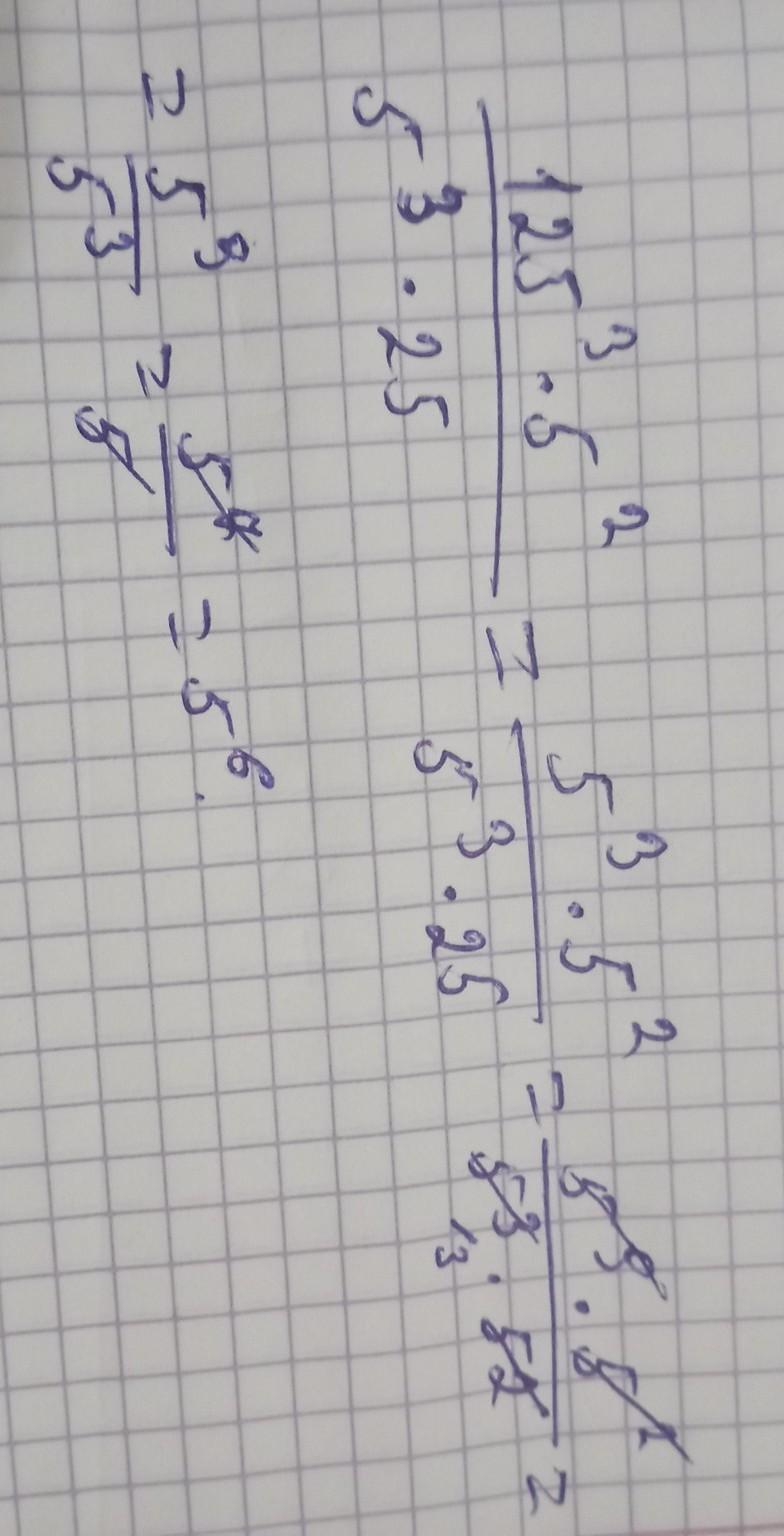 125³ · 5² / 5³ · 25 = 5³ · 5² / 5³ · 25 = 5⁹ · 5² / 5³ · 5² =
= 5⁹ / 5³ = 5 / 5 = 5⁶